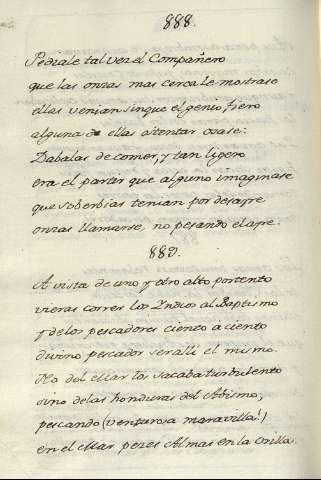 888.
Pediale tal vez el Compañero
que las onzas mas cerca le mostrase
ellas venian sinque el genio fiero
alguna de ellas ostentar osase:
Dabalas de comer, y tan ligero
era el partir que alguno imaginase
que soberbias tenian por desayre
onzas llamarse, no pesando el ayre.
889.
A vista de uno y otro alto portento
vieras correr los Yndios al Baptismo
y de los pescadores ciento a ciento
divino pescador ser alli el mismo.
No del Mar los sacaba turbulento
sino de las honduras del Abismo,
pescando (venturosa maravilla!)
en el Mar pezes Almas en la orilla.